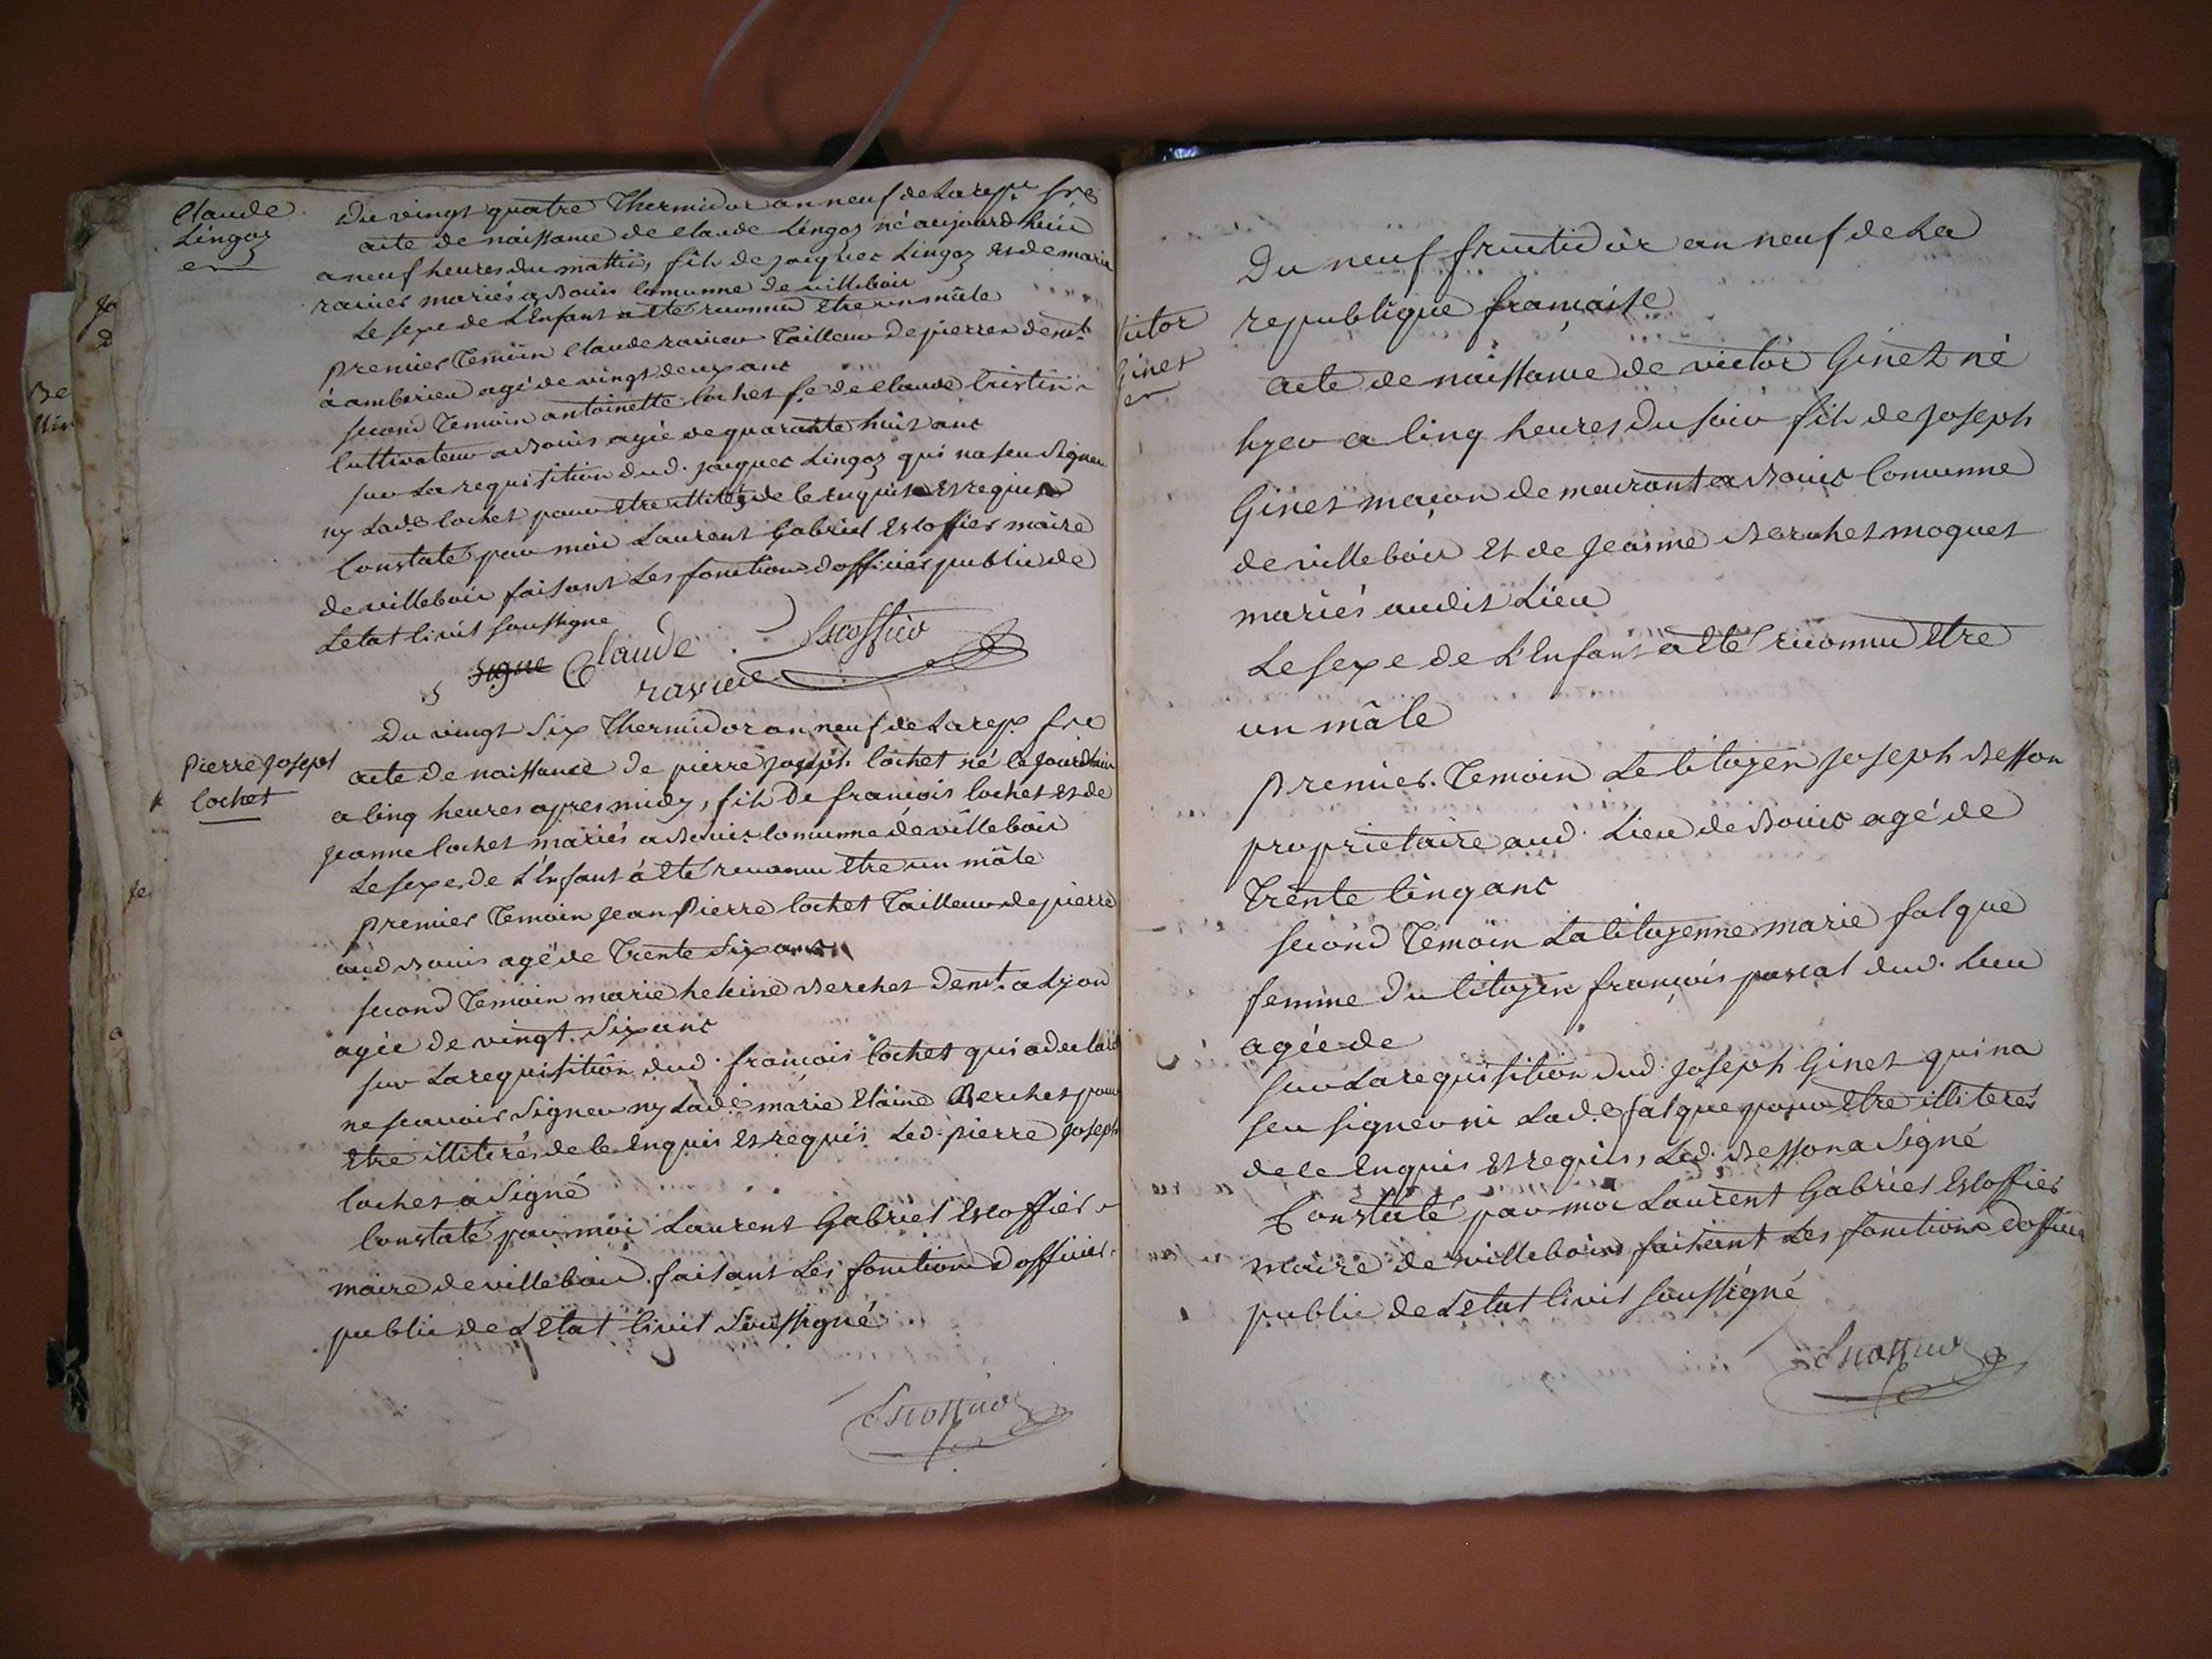 Claude
Lingoz
Du vingt quatre Thermidor an neuf de La rep.e fr.e
acte de naissance de claude Lingoz né aujourd huii
a neuf heures du mattin, fils de jacques Lingoz et de marie
ravier mariés a Bouis commune de villebois
Le sexe de L'Enfant a été reconnu Etre un mâle
premier Temoin claude ravier Tailleur de pierres dem.t
à amberieu agé de vingt deux ans
second Temoin antoinette cochet f.e de claude Cristin
Cultivateur a Bouis agée de quarante huit ans
sur La requisition dud. jacques Lingoz qui na seu Signer
ny Lad.e cochet pour Etre illiterés de ce Enquis et requis
Constaté par moi Laurent Gabriel Escoffier maire
de villebois faisant Les fonctions d'officier public de
Letat Civil soussigné
Signé Claude Escoffier
ravier
Pierre Joseph
Cochet
Du vingt Six Thermidor an neuf de La rep. fr.e
acte de naissance de pierre joseph cochet né ce jourdhuii
a Cinq heures apres midy, fils De francois cochet et de
jeanne cochet mariés a Bouis Commune de villebois
Le sexe de L'Enfant à été reconnu Etre un mâle
premier Temoin jean Pierre cochet Tailleur de pierre
aud Bouis agé de Trente Six ans
second Temoin marie heleine Berchet dem.t a Lyon
agée de vingt Six ans
sur La requisition dud. francois Cochet qui a declaré
ne scavoir Signer ny Lad.e marie Elaine Berchet pour
Etre illiterés de ce Enquis et requis Led. pierre Joseph
Cochet a Signé
Constaté par moi Laurent Gabriel Escoffier
maire de villebois faisant Les fonctions d'officier
public de L'Etat Civil Soussigné
Escoffier
victor
Ginet
Du neuf fructidor an neuf de La
republique francaise
acte de naissance de victor Ginet né
hyer a Cinq heures du soir fils de joseph
Ginet maçon demeurant a Bouis Commune
de villebois et de jeanne Berchet moquet
mariés audit Lieu
Le sexe de L'Enfant a été reconnu Etre
un mâle
premier Temoin Le Citoyen joseph Besson
proprietaire aud. Lieu de Bouis agé de
Trente Cinq ans
second Temoin La Citoyenne marie falque
femme du Citoyen françois pascal dud. Lieu
agée de
sur La requisition dud. joseph Ginet qui na
seu signer ni Lad.e falque pour Etre illiterés
de ce Enquis et requis, Led. Besson a Signé
Constaté par moi Laurent Gabriel Escoffier
maire de villebois faisant Les fonctions d'officier
public de Letat Civil soussigné
Escoffier